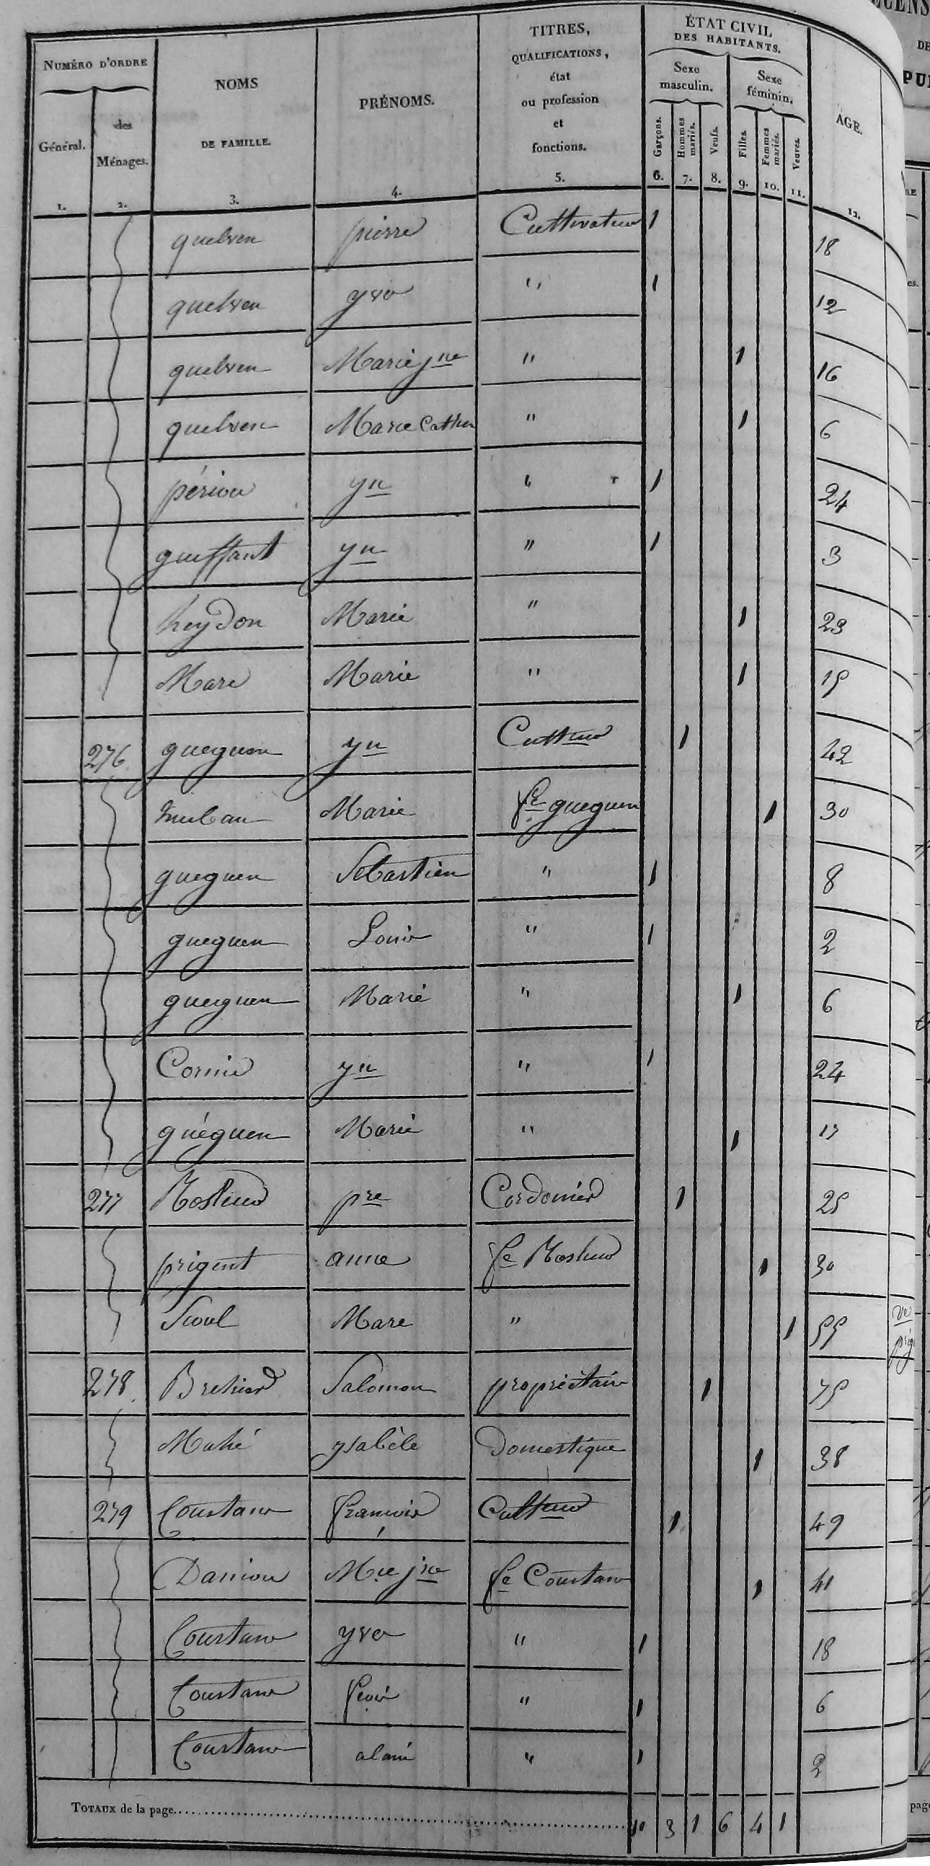 NUMÉRO D'ORDRE
Général.
des Ménages.
NOMS DE FAMILLE.
PRÉNOMS.
TITRES, QUALIFICATIONS, état ou profession et fonctions.
ÉTAT CIVIL DES HABITANTS.
Sexe masculin.
Sexe féminin.
Garçons.
Hommes mariés.
Veufs.
Filles.
Femmes mariées.
Veuves.
AGE.
1. 2. 3. 4. 5. 6. 7. 8. 9. 10. 11. 12.
quelven pierre Cultivateur 1 18
quelven yves " 1 12
quelven Marie jne " 1 16
quelven Marie Cather " 1 6
périou yn " 1 24
queffant yn " 1 3
heydon Marie " 1 23
Mare Marie " 1 15
276 gueguen yn Cultteur 1 42
Marie fe gueguen 1 30
gueguen Sébastien " 1 8
gueguen Louis " 1 2
gueguen Marie " 1 6
Cornic yn " 1 24
guéguen Marie " 1 17
277 pre Cordonier 1 25
prigent anne fe 1 30
Mare " 1 55
278 Salomon propriétaire 1 75
Mahé ysabèle Domestique 1 38
279 Coustans francois Cultteur 1 49
Daniou Mie jne fe Coustans 1 41
Coustans yves " 1 18
Coustans " 1 6
Coustans alain " 1 2
TOTAUX de la page 10 3 1 6 4 1